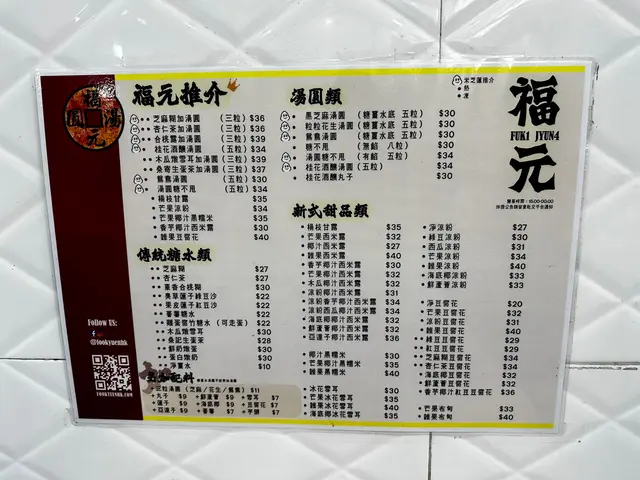 福元推介
芝麻糊加湯圓 (三粒) $36
杏仁茶加湯圓 (三粒) $36
合桃露加湯圓 (三粒) $39
桂花酒釀湯圓 (五粒) $34
木瓜燉雪耳加湯圓 (三粒) $39
桑寄生蛋茶加湯圓 (三粒) $37
鴛鴦湯圓 (五粒) $30
湯圓糖不甩 (五粒) $34
楊枝甘露 $35
芒果涼粉 $34
芒果椰汁黑糯米 $35
香芋椰汁西米露 $30
雜果豆腐花 $40
傳統糖水類
芝麻糊 $27
杏仁茶 $27
棗香合桃糊 $30
臭草蓮子綠豆沙 $22
果皮蓮子紅豆沙 $22
薑薯糖水 $22
雞蛋腐竹糖水 (可走蛋) $22
木瓜燉雪耳 $30
桑記生蛋茶 $28
鮮奶燉蛋 $30
蛋白燉奶 $30
淨薑水 $10
三粒湯圓 (芝麻/花生/鴛鴦) $11
丸子 $9 鮮蘆薈 $9 雪耳 $7
蓮子 $9 海底椰 $9 豆腐花 $7
亞達子 $9 番薯 $7 芋頭 $7
湯圓類
黑芝麻湯圓 (糖薑水底 五粒) $30
粒粒花生湯圓 (糖薑水底 五粒) $30
鴛鴦湯圓 (糖薑水底 五粒) $30
糖不甩 (無餡 八粒) $30
湯圓糖不甩 (有餡 五粒) $34
桂花酒釀湯圓 (五粒) $34
桂花酒釀丸子 $30
新式甜品類
楊枝甘露 $35
芒果西米露 $32
椰汁西米露 $27
雜果西米露 $40
香芋椰汁西米露 $30
芒果椰汁西米露 $32
木瓜椰汁西米露 $32
涼粉椰汁西米露 $31
涼粉香芋椰汁西米露 $34
涼粉西瓜椰汁西米露 $34
海底椰椰汁西米露 $32
鮮蘆薈椰汁西米露 $32
亞達子椰汁西米露 $36
椰汁黑糯米 $30
芒果椰汁黑糯米 $35
雜果黑糯米 $40
冰花雪耳 $30
芒果冰花雪耳 $35
雜果冰花雪耳 $40
海底椰冰花雪耳 $35
米芝蓮推介
熱
凍
福元
FUK1 JYUN4
淨涼粉 $27
綠豆涼粉 $30
西瓜涼粉 $31
芒果涼粉 $34
雜果涼粉 $40
海底椰涼粉 $33
鮮蘆薈涼粉 $33
淨豆腐花 $20
芒果豆腐花 $32
涼粉豆腐花 $31
雜果豆腐花 $40
綠豆豆腐花 $29
紅豆豆腐花 $29
芝麻糊豆腐花 $34
杏仁茶豆腐花 $34
海底椰豆腐花 $32
鮮蘆薈豆腐花 $32
香芋椰汁紅豆豆腐花 $36
芒果布甸 $33
雜果布甸 $40
福元湯圓
Follow US:
@fookyuenhk
FOOKYUENHK.COM